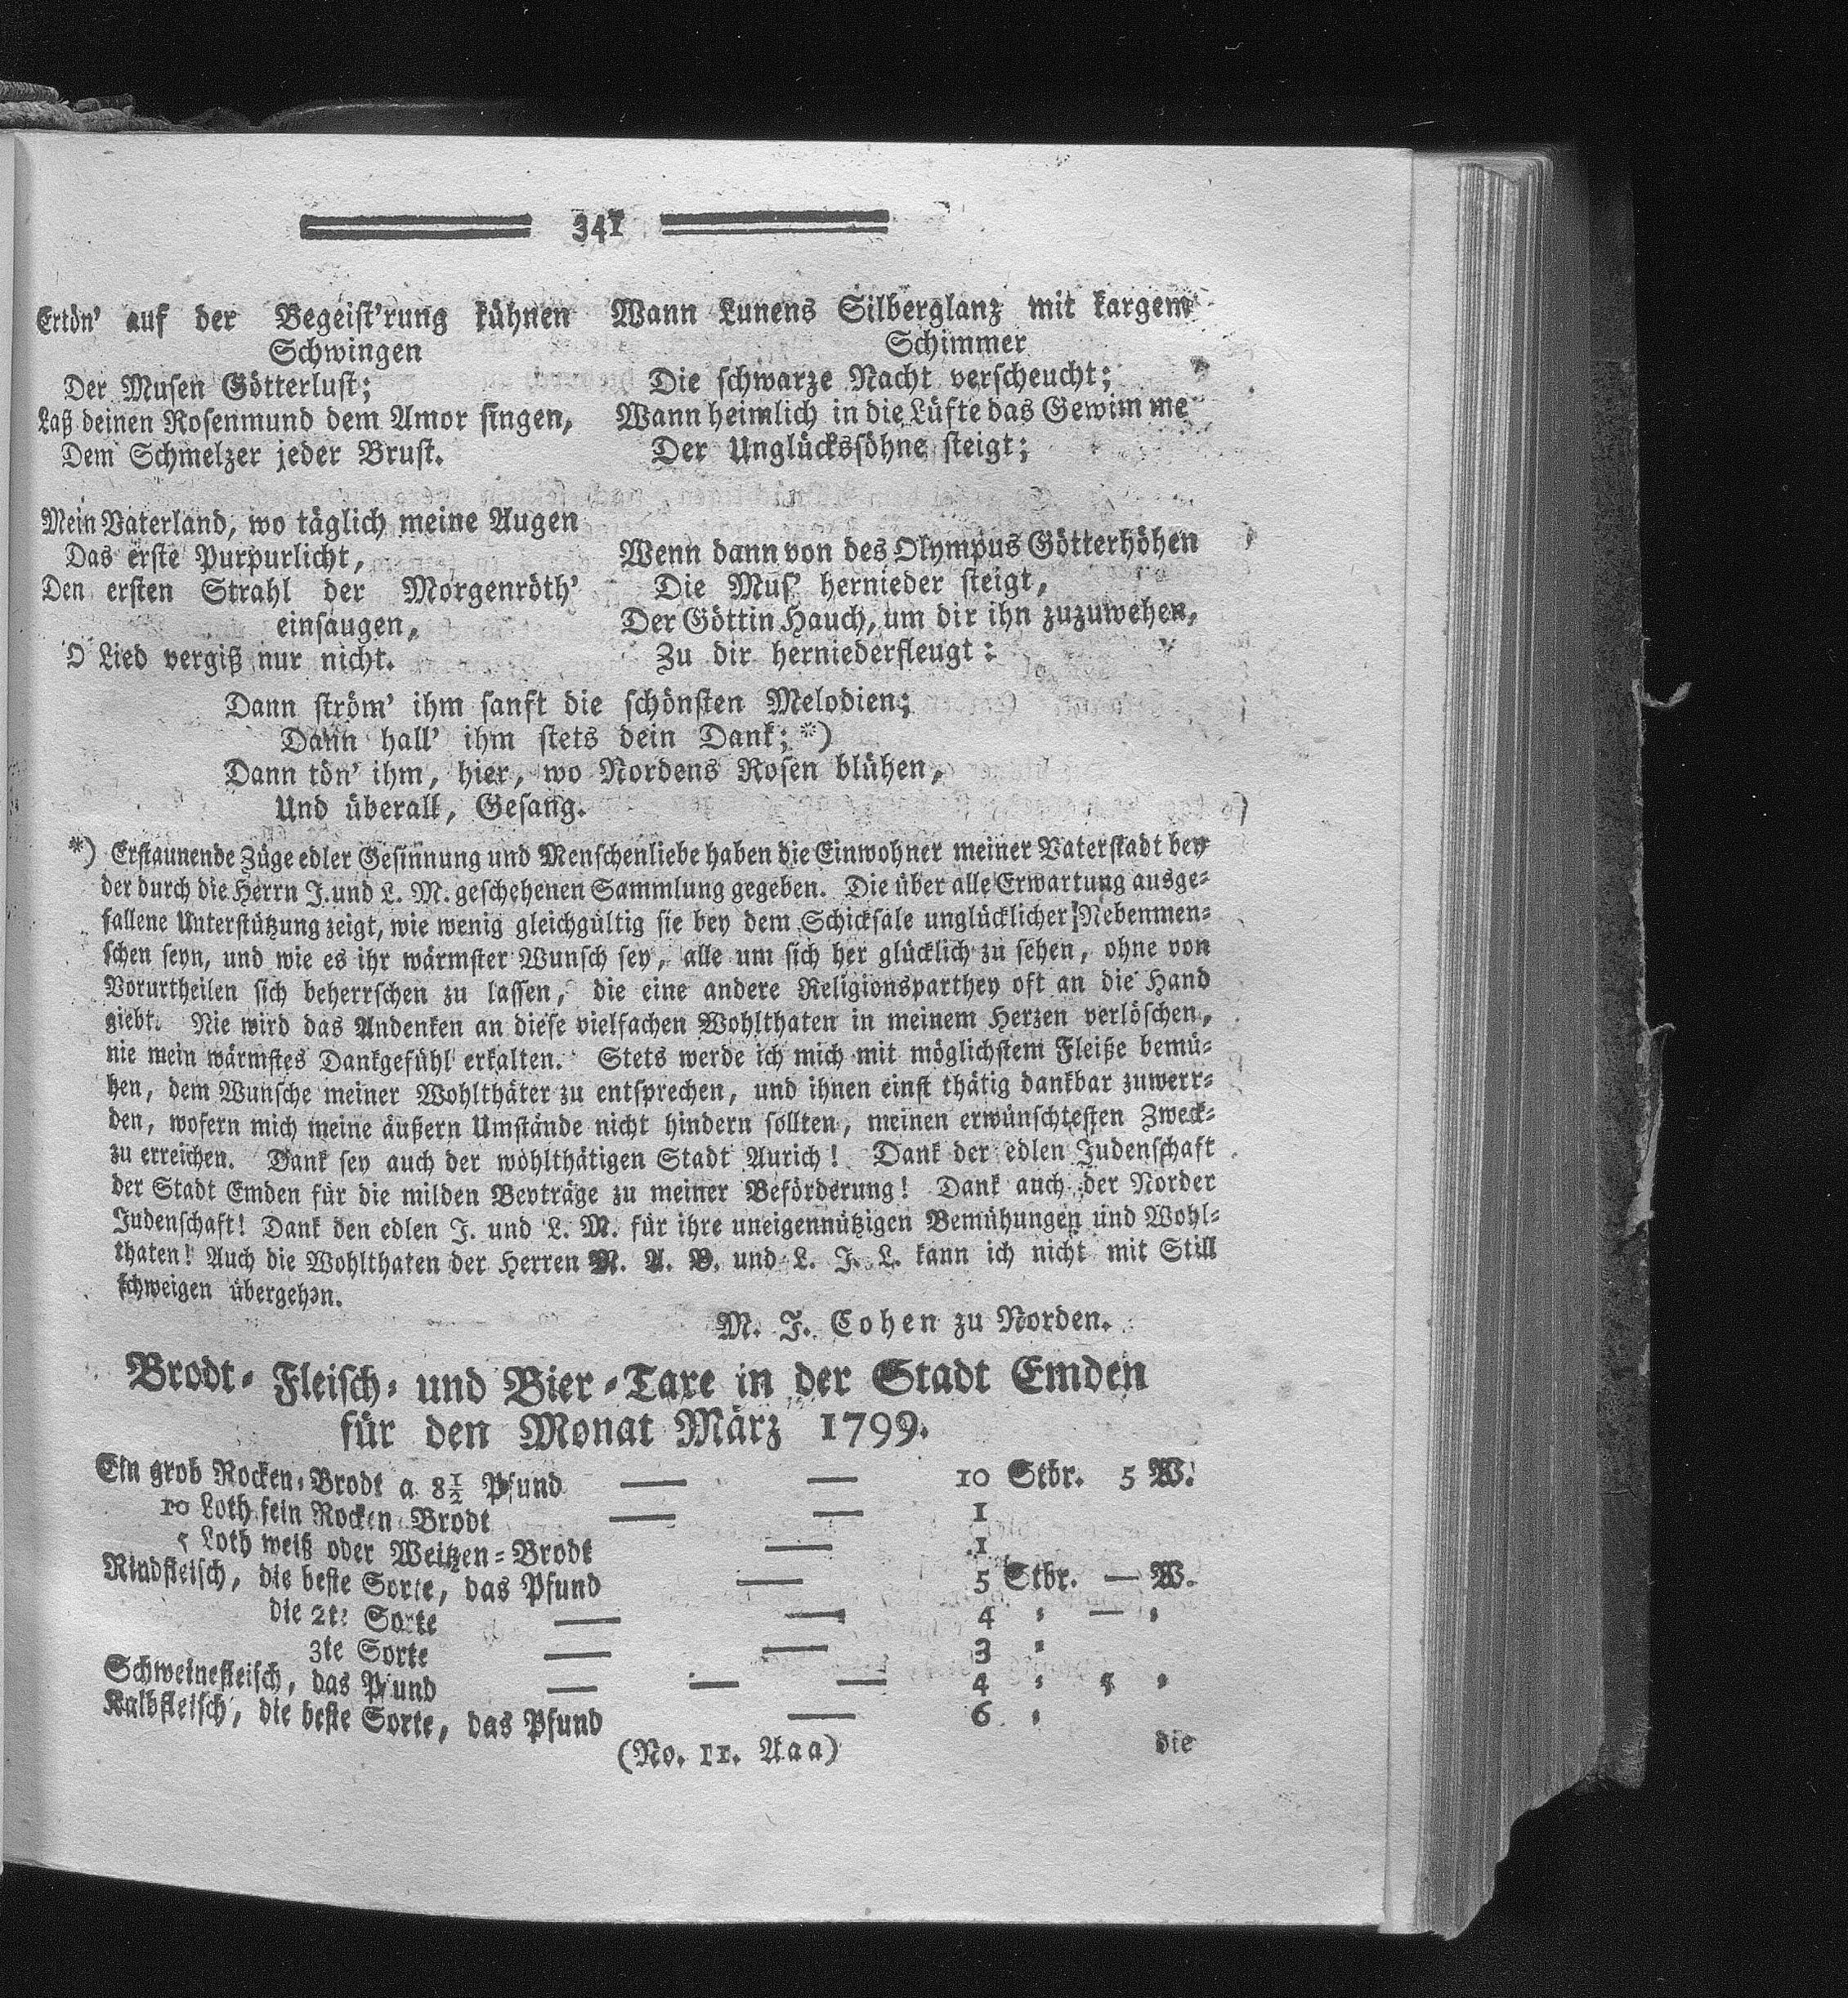 341
Ertön' auf der Begeist'rung kühnen
Schwingen
Der Musen Götterlust;
Laß deinen Rosenmund dem Amor singen,
Dem Schmelzer jeder Brust.
Mein Vaterland, wo täglich meine Augen
Das erste Purpurlicht,
Den ersten Strahl der Morgenröth'
einsaugen,
O Lied vergiß nur nicht.
Wann Lunens Silberglanz mit kargem
Schimmer
Die schwarze Nacht verscheucht;
Wann heimlich in die Lüfte das Gewimme
Der Unglückssöhne steigt;
Wenn dann von des Olympus Götterhöhen
Die Mus' hernieder steigt,
Der Göttin Hauch, um dir ihn zuzuwehen,
Zu dir herniederfleugt:
Dann ström' ihm sanft die schönsten Melodien;
Dann hall' ihm stets dein Dank; *)
Dann tön' ihm, hier, wo Nordens Rosen blühen,
Und überall, Gesang.
*) Erstaunende Züge edler Gesinnung und Menschenliebe haben die Einwohner meiner Vaterstadt bey
der durch die Herrn J. und L. M. geschehenen Sammlung gegeben. Die über alle Erwartung ausge-
fallene Unterstützung zeigt, wie wenig gleichgültig sie bey dem Schicksale unglücklicher Nebenmen-
schen seyn, und wie es ihr wärmster Wunsch sey, alle um sich her glücklich zu sehen, ohne von
Vorurtheilen sich beherrschen zu lassen, die eine andere Religionsparthey oft an die Hand
giebt. Nie wird das Andenken an diese vielfachen Wohlthaten in meinem Herzen verlöschen,
nie mein wärmstes Dankgefühl erkalten. Stets werde ich mich mit möglichstem Fleiße bemü-
hen, dem Wunsche meiner Wohlthäter zu entsprechen, und ihnen einst thätig dankbar zuwerr-
den, wofern mich meine äußern Umstände nicht hindern sollten, meinen erwünschtesten Zweck-
zu erreichen. Dank sey auch der wohlthätigen Stadt Aurich! Dank der edlen Judenschaft
der Stadt Emden für die milden Beyträge zu meiner Beförderung! Dank auch der Norder
Judenschaft! Dank den edlen J. und L. M. für ihre uneigennützigen Bemühungen und Wohl-
thaten! Auch die Wohlthaten der Herren M. A. B. und L. J. L. kann ich nicht mit Still
schweigen übergehen.
M. J. Cohen zu Norden.
Brodt- Fleisch- und Bier-Taxe in der Stadt Emden
für den Monat März 1799.
Ein grob Rocken-Brodt a 8½ Pfund — — 10 Stbr. 5 W.
10 Loth fein Rocken Brodt — — 1
5 Loth weiß oder Weitzen-Brodt — 1
Rindfleisch, die beste Sorte, das Pfund — 5 Stbr. — W.
die 2te Sorte — — 4 " — "
3te Sorte — — 3 "
Schweinefleisch, das Pfund — — — 4 " 5 "
Kalbfleisch, die beste Sorte, das Pfund — 6 "
(No. 11. Aaa)
die